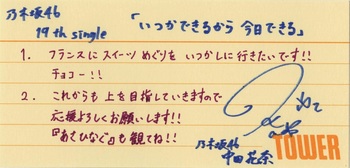 乃木坂46
19th single 「いつかできるから 今日できる」
1. フランスにスイーツめぐりをいつかしに行きたいです!!
チョコー!!
2. これからも上を目指していきますので
応援よろしくお願いします!!
『あさひなぐ』も観てね!!
乃木坂46
中田花奈
TOWER